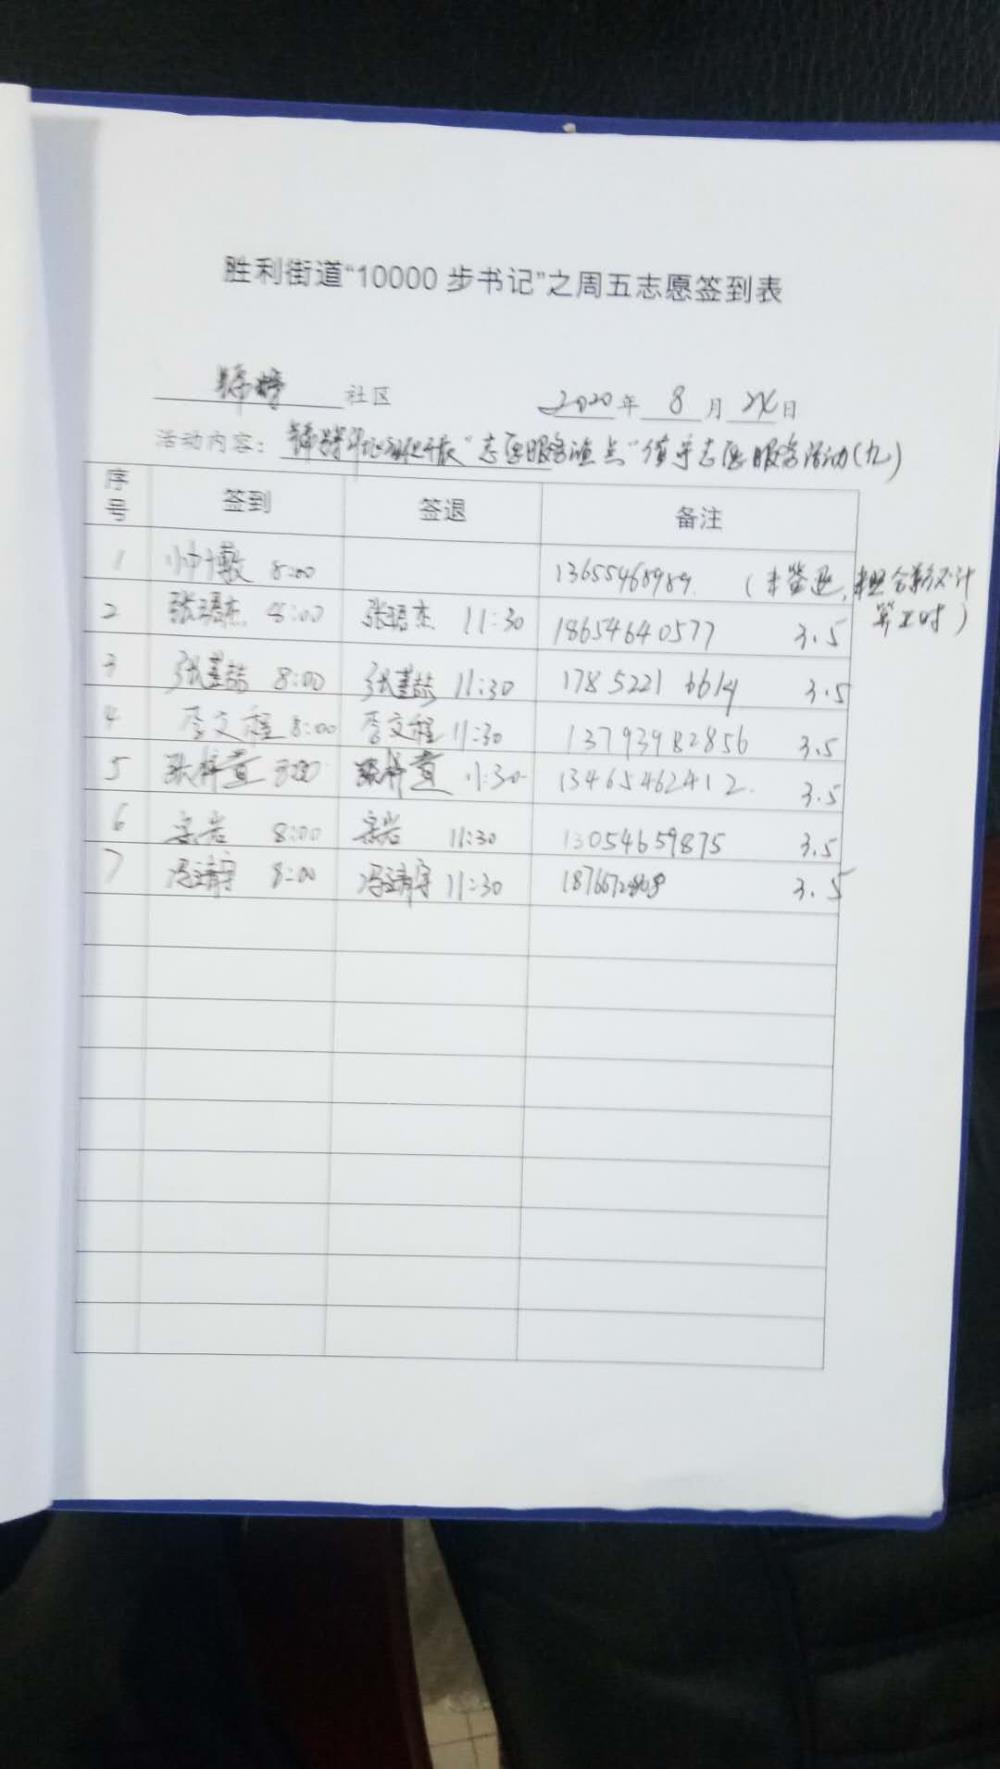 胜利街道“10000步书记”之周五志愿签到表
社区 2020年8月日
活动内容： “志愿服务渔点”值守志愿服务活动(九)
序号 签到 签退 备注
1 8:00 13655468989 (未签退,未照合影不计
算工时)
2 张珺杰 8:00 张珺杰 11:30 18654640577 3.5
3 张喆 8:00 张喆 11:30 17852216614 3.5
4 李文程 8:00 李文程 11:30 13793982856 3.5
5 张梓萱 8:00 张梓萱 11:30 13465462412. 3.5
6 宗岩 8:00 宗岩 11:30 13054659875 3.5
7 冯靖宇 8:00 冯靖宇 11:30 3.5